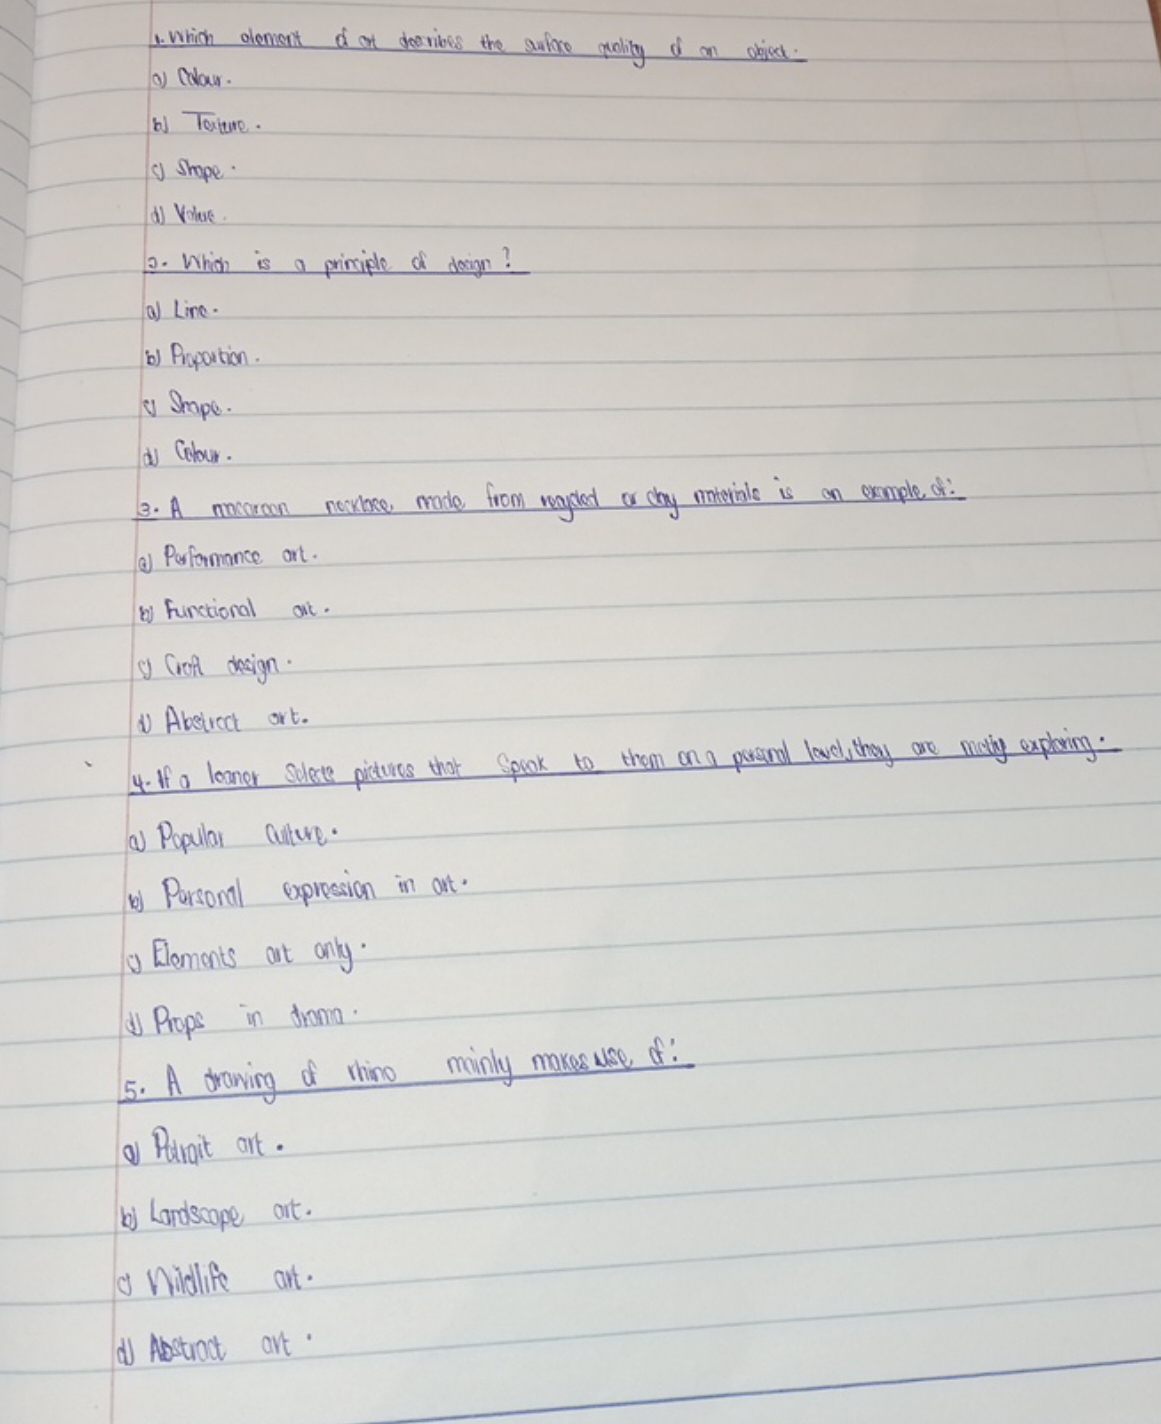 1. Which element of art describes the surface quality of an object.
a) Colour.
b) Texture.
c) Shape.
d) Value.
2. Which is a principle of design?
a) Line.
b) Proportion.
c) Shape.
d) Colour.
3. A macaroon necklace made from recycled or clay materials is an example of:
a) Performance art.
b) Functional art.
c) Craft design.
d) Abstract art.
4. If a learner selects pictures that speak to them on a personal level, they are mostly exploring.
a) Popular culture.
b) Personal expression in art.
c) Elements art only.
d) Props in drama.
5. A drawing of rhino mainly makes use of:
a) art.
b) Landscape art.
c) Wildlife art.
d) Abstract art.